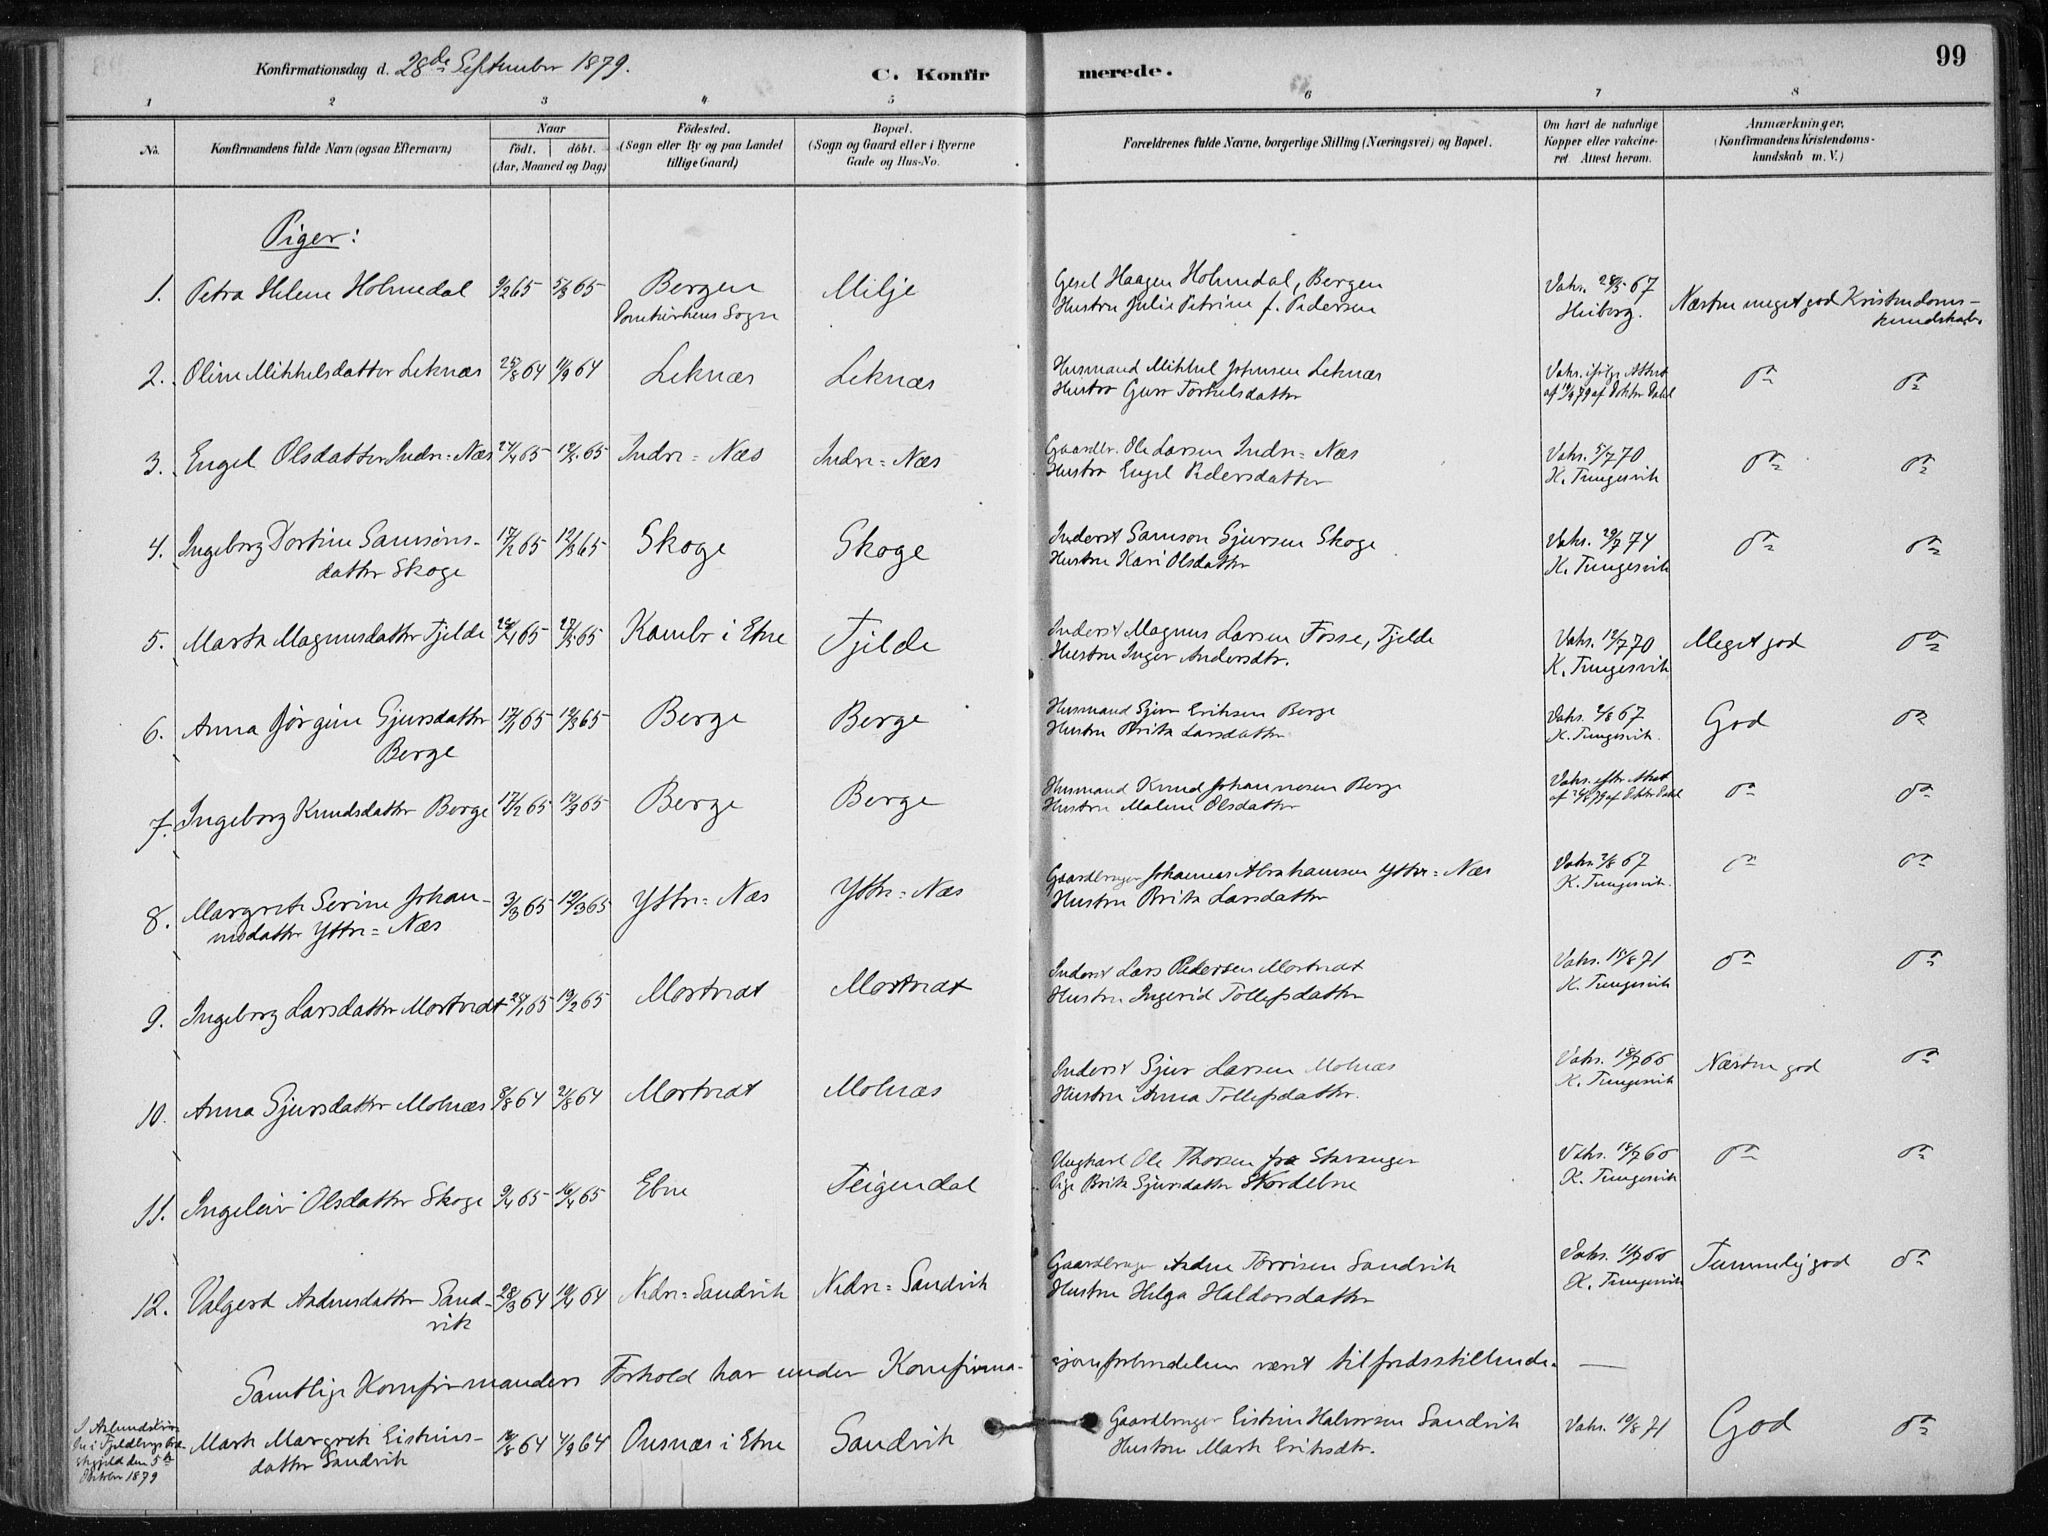 Konfirmationsdag d. 28de September 1879.
C. Konfirmerede.
99
1 2 3 4 5 6 7 8
No.
Konfirmandens fulde Navn (ogsaa Efternavn)
Naar
födt. döbt.
(Aar, Maaned og Dag)
Födested.
(Sogn eller By og paa Landet
tillige Gaard)
Bopæl.
(Sogn og Gaard eller i Byerne
Gade og Hus-No.
Forældrenes fulde Navne, borgerlige Stilling (Næringsvei) og Bopæl.
Om havt de naturlige
Kopper eller vakcine-
ret. Attest herom.
Anmærkninger,
(Konfirmandens Kristendoms-
kundskab m. V.)
Piger:
1. Petra Helene Holmedal 9/2 65 5/3 65 Bergen Milje
Domkirkens Sogn
Gesel Haagen Holmedal, Bergen
Hustru Julie Petrine f. Pedersen
Vaks. 28/5 67
Heiberg.
Næsten meget god Kristendoms-
kundskab.
2. Oline Mikkelsdatter Leknæs 25/8 64 11/9 64 Leknæs Leknæs
Husmand Mikkel Johnsen Leknæs
Hustru Guro Torkelsdatter
Vaks. ifølge Attest
af 14/9 79 af Doktor Dahl
do do
3. Engel Olsdatter Indre=Næs 24/4 65 12/5 65 Indre=Næs Indre=Næs
Gaardbr. Ole Larsen Indre=Næs
Hustru Engel Pedersdatter
Vaks. 5/7 70
K. Tungesvik
do do
4. Ingeborg Dortine Samsons- 17/2 65 12/3 65 Skoge Skoge
datter Skoge
Inderst Samson Sjursen Skoge
Hustru Kari Olsdatter
Vaks. 29/7 74
K. Tungesvik
do do
5. Marta Magnusdatter Tjelde 26/4 65 27/5 65 Kambe i Etne Tjelde
Inderst Magnus Larsen Fosse, Tjelde
Hustru Inger Andersdtr.
Vaks. 12/7 70
K. Tungesvik
Meget god do
6. Anna Jørgine Sjursdatter 17/1 65 12/3 65 Berge Berge
Berge
Husmand Sjur Eriksen Berge
Hustru Brita Larsdatter
Vaks. 2/8 67
K. Tungesvik.
God do
7. Ingeborg Knudsdatter Berge 17/2 65 12/3 65 Berge Berge
Husmand Knud Johannesen Berge
Hustru Malene Olsdatter
Vaks. efter Attest
af 24/8 79 af Doktor Dahl
do do
8. Margrete Serine Johan- 3/3 65 12/3 65 Yttre=Næs Yttre=Næs
nesdatter Yttre=Næs
Gaardbruger Johannes Abrahamsen Yttre=Næs
Hustru Brita Larsdatter
Vaks. 2/8 67
K. Tungesvik.
do do
9. Ingeborg Larsdatter Mortvedt 25/1 65 19/2 65 Mortvedt Mortvedt
Inderst Lars Pedersen Mortvedt
Hustru Ingerid Tollefsdatter
Vaks. 15/8 71
K. Tungesvik
do do
10. Anna Sjursdatter Molnæs 8/8 64 21/8 64 Mortvedt Molnæs
Inderst Sjur Larsen Molnæs
Hustru Anna Tollefsdatter.
Vaks. 18/7 66
K. Tungesvik
Næsten god do
11. Ingeleiv Olsdatter Skoge 9/4 65 16/4 65 Etne Teigendal
Ungkarl Ole Thorsen fra Stavanger
Pige Brita Sjursdatter Stordetne
Vaks. 18/7 66
K. Tungesvik
do do
12. Valgerd Aadnesdatter Sand- 28/3 64 10/4 64 Nedre=Sandvik Nedre=Sandvik
vik
Gaardbruger Aadne Torrisen Sandvik
Hustru Helga Haldorsdatter
Vaks. 11/7 66
K. Tungesvik
Temmelig god do
Samtlige Konfirmanders Forhold har under Konfirma-
sjonsforberedelsen været tilfredsstillende. —
den 5te
Oktober 1879
Marta Margrete Eistens- 16/8 64 4/9 64 Onsnæs i Etne Sandvik
datter Sandvik
Gaardbruger Eisten Halvorsen Sandvik
Hustru Marta Eriksdtr.
Vaks. 10/8 71
God do